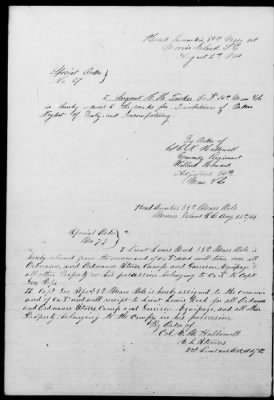 Head Quarters 54th Mass Vol
Morris Island S.C.
August 2nd
Special Order
No 67
Sergent
is hereby reduced to the ranks for Violation of Orders
Neglect of Duty and Incompetency
By Order of
Col E N Hallowell
Commdg Regiment
Willard Howard
Adjutant 54th
Mass Vol
Head Quarters 54th Mass Vols
Morris Island S.C. Aug
Special Order
No 73
Lieut Lewis Reed 54th Mass Vols is
hereby relieved from the command of Co and will turn over all
Ordnance, and Ordnance Stores Camp and Garrison Equipage &
all other Property in his possession belonging to Co to Capt
Geo Pope
II Capt Geo Pope 54th Mass Vols is hereby assigned to the comman
and of Co and will receipt to Lieut Lewis Reed for all Ordnance
and Ordnance Stores Camp and Garrison Equipage, and all other
Property belonging to the Company in his possession
By Order of
Col. E. N. Hallowell
2nd Lieut and Act Adjt